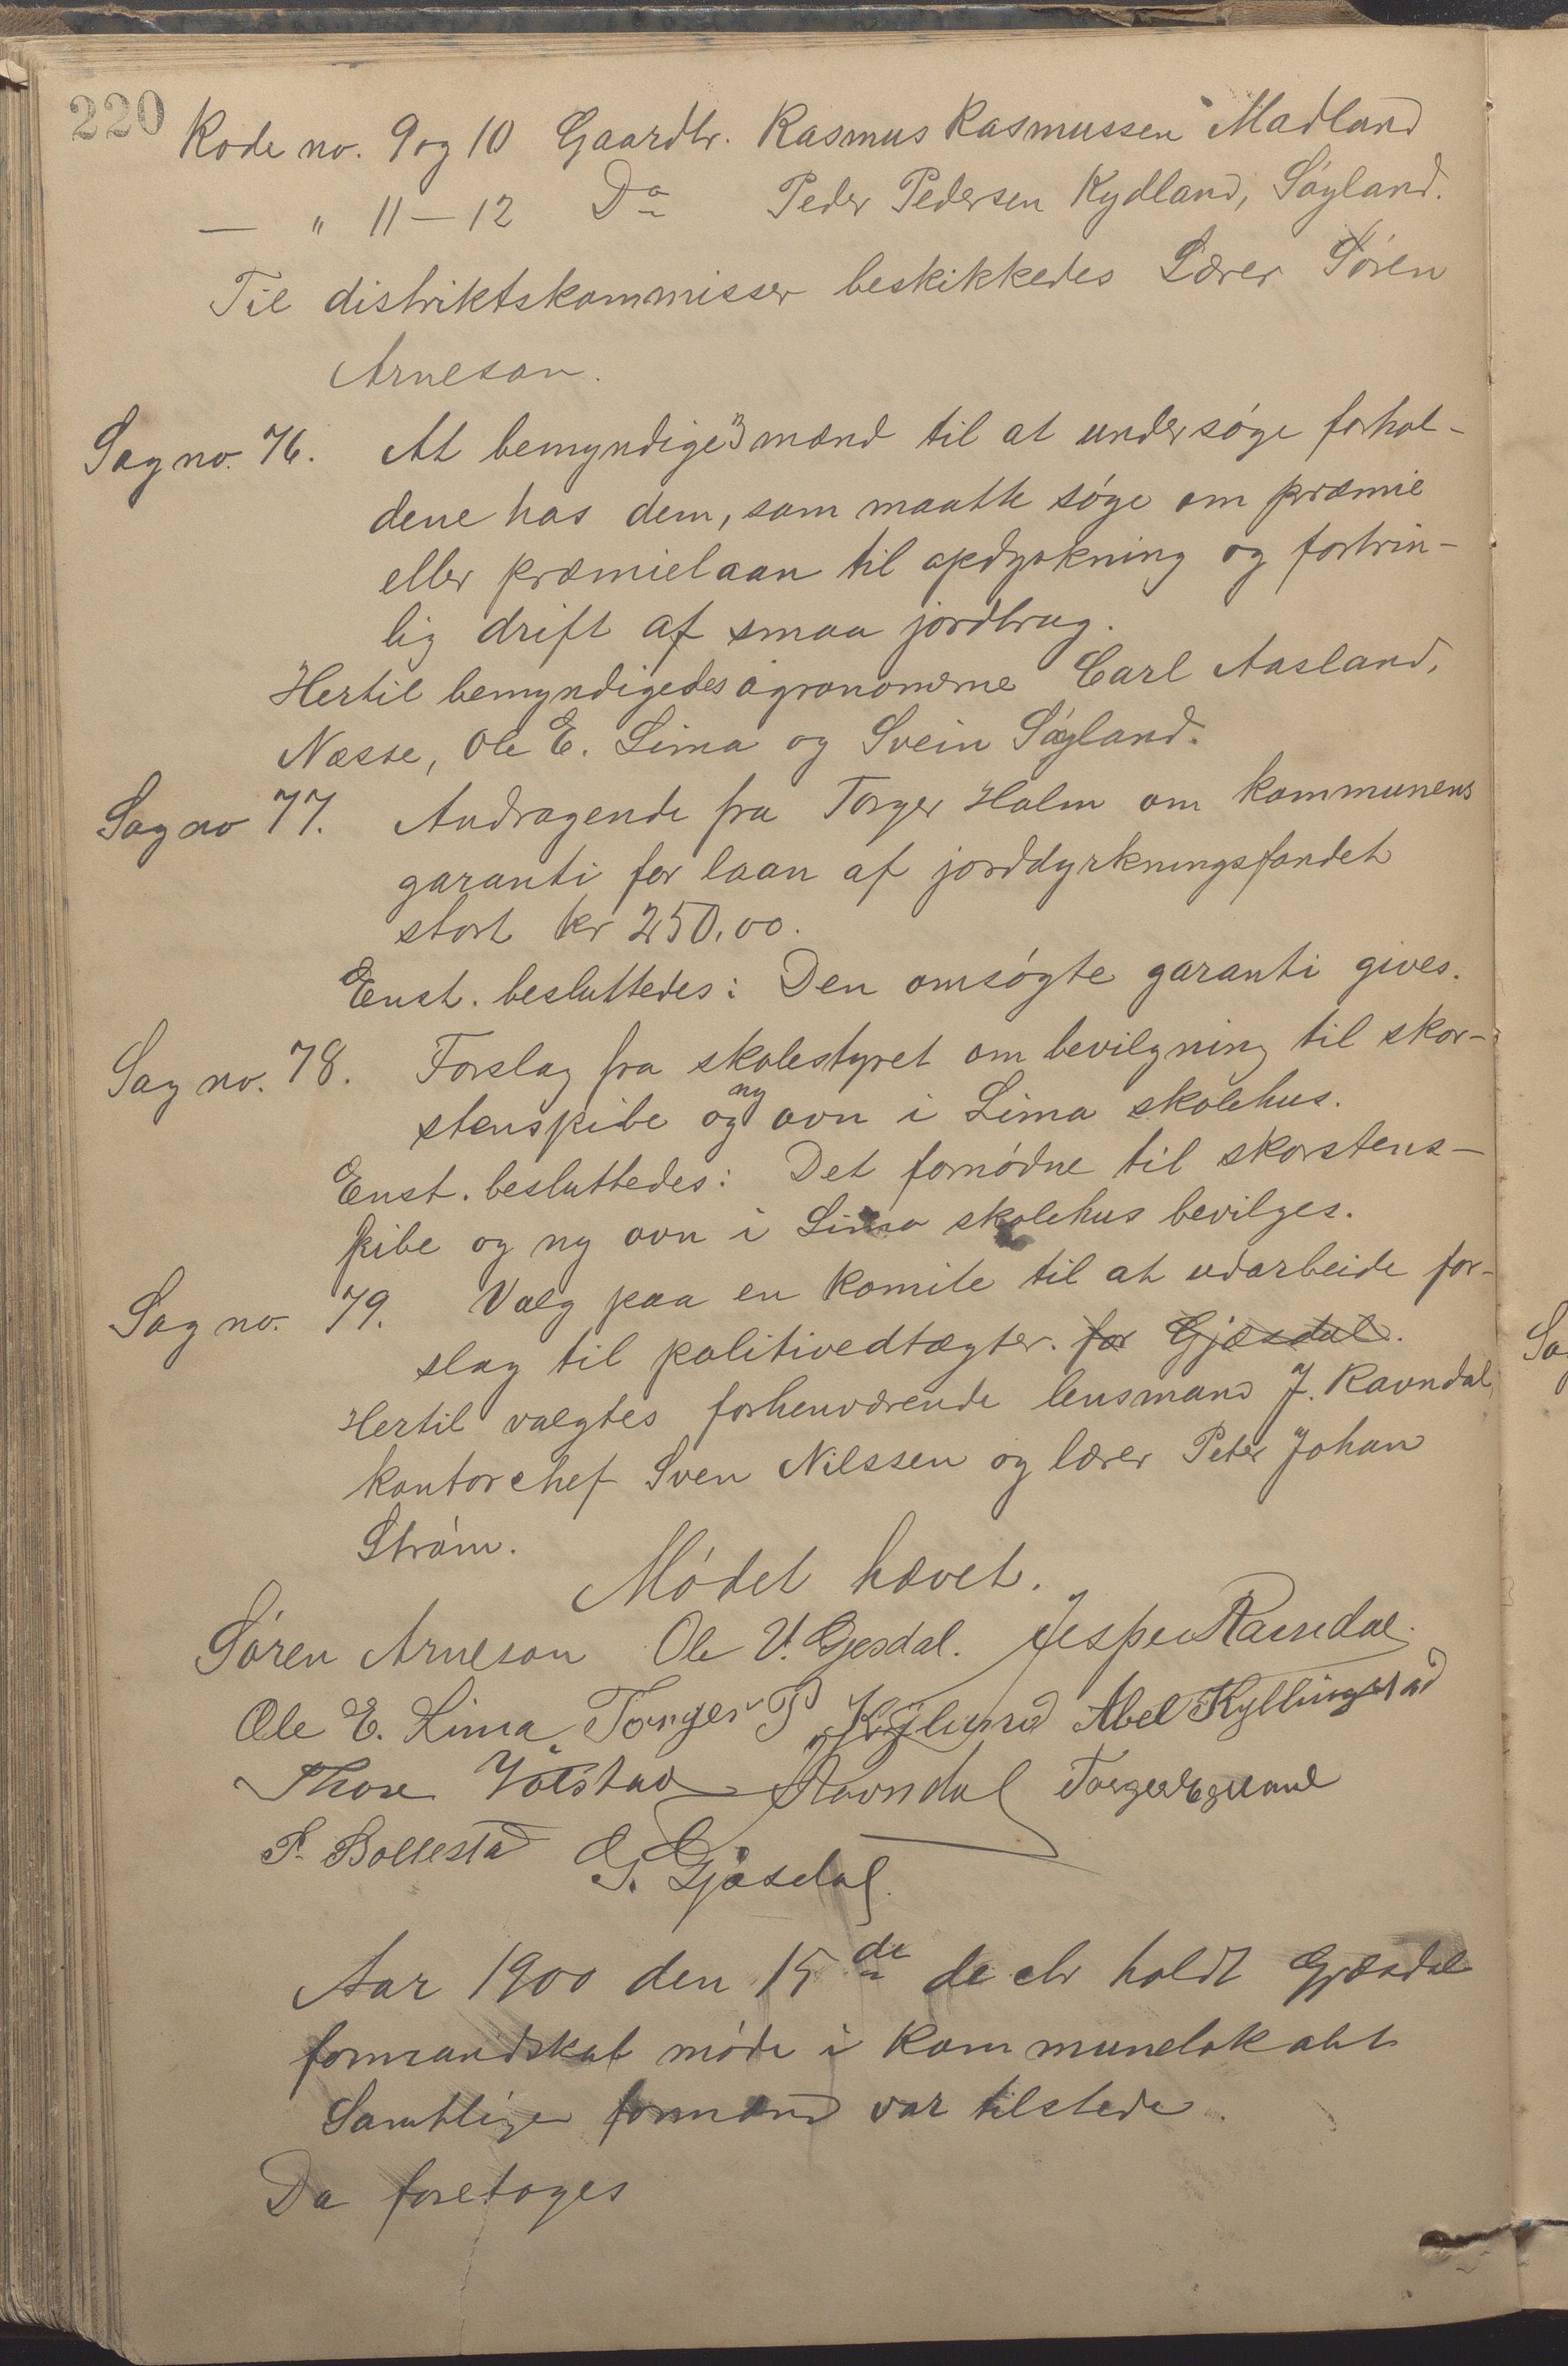 220
Rode no. 9 og 10 Gaardbr. Rasmus Rasmussen Madland
— " 11 — 12 Do Peder Pedersen Kydland, Søyland.
Til distriktskommissær beskikkedes Lærer Søren
Arneson.
Sag no. 76. At bemyndige 3 mænd til at undersøge forhol-
dene hos dem, som maatte søge om præmie
eller præmielaan til opdyrkning og fortrin-
lig drift af smaa jordbrug.
Hertil bemyndigedes agronomerne Carl Aasland,
Næsse, Ole E. Lima og Svein Søyland.
Sag no 77. Andragende fra Torger Holm om kommunens
garanti for laan af jorddyrkningsfondet
stort kr 250,00.
Enst. besluttedes: Den omsøgte garanti gives.
Sag no. 78. Forslag fra skolestyret om bevilgning til skor-
stenspibe og ny ovn i Lima skolehus.
Enst. besluttedes: Det fornødne til skorstens-
pibe og ny ovn i Lima skolehus bevilges.
Sag no. 79. Valg paa en komite til at udarbeide for-
slag til politivedtægter. for Gjæsdal.
Hertil valgtes forhenværende lensmand J. Ravndal,
kontorchef Sven Nilssen og lærer Peter Johan
Strøm.
Mødet hævet.
Søren Arneson Ole V. Gjesdal. Jesper Ravndal.
Ole E. Lima Torger P Kydland Abel Kyllingstad
Thore Ravndal Torger
P. Bollestad G. Gjæsdal.
Aar 1900 den 15de decbr holdt Gjæsdal
formandskab møde i kommunelokalet
Samtlige formænd var tilstede.
Da foretoges